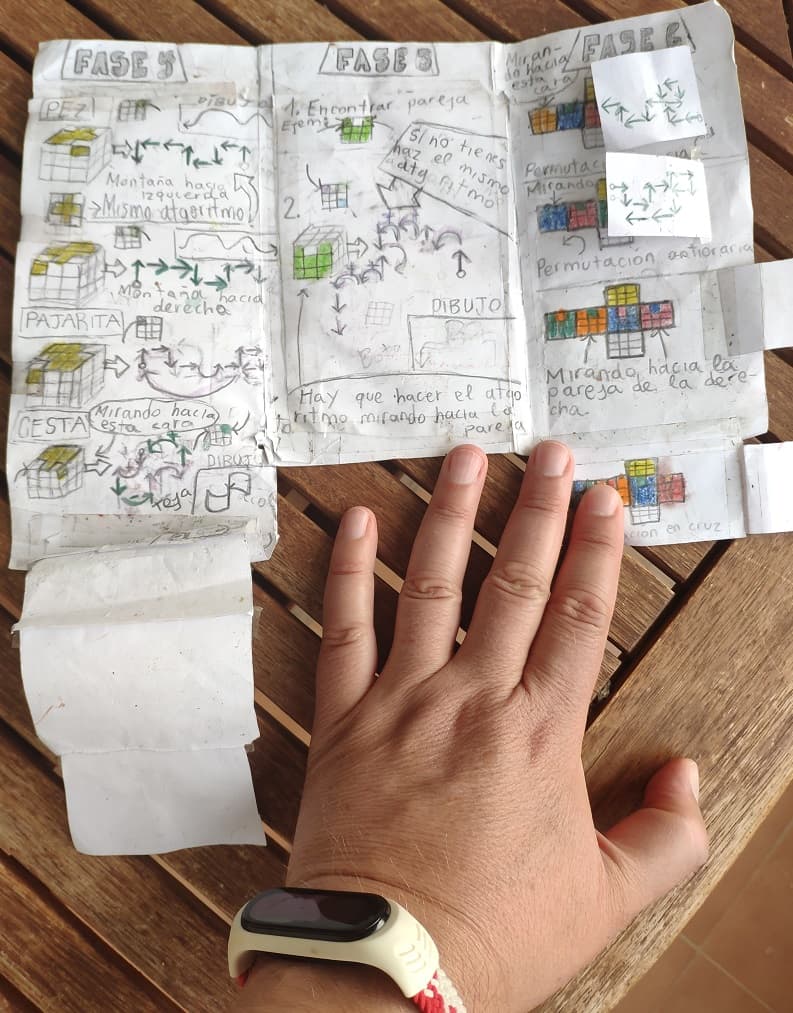 FASE 4
PEZ
DIBUJO
Montaña hacia
izquierda
Mismo atgoritmo
Montaña hacia
derecha
PAJARITA
CESTA
Mirando hacia
esta cara
DIBUJO
FASE 5
1. Encontrar pareja
Ejem:
Si no tienes
haz el mismo
atgoritmo
2.
DIBUJO
Hay que hacer el atgo
ritmo mirando hacia la
pareja
FASE 6
Miran-
do hacia
esta
cara
Permutac
Mirando
Permutación antioraria
Mirando hacia la
pareja de la dere-
cha.
cion en cruz